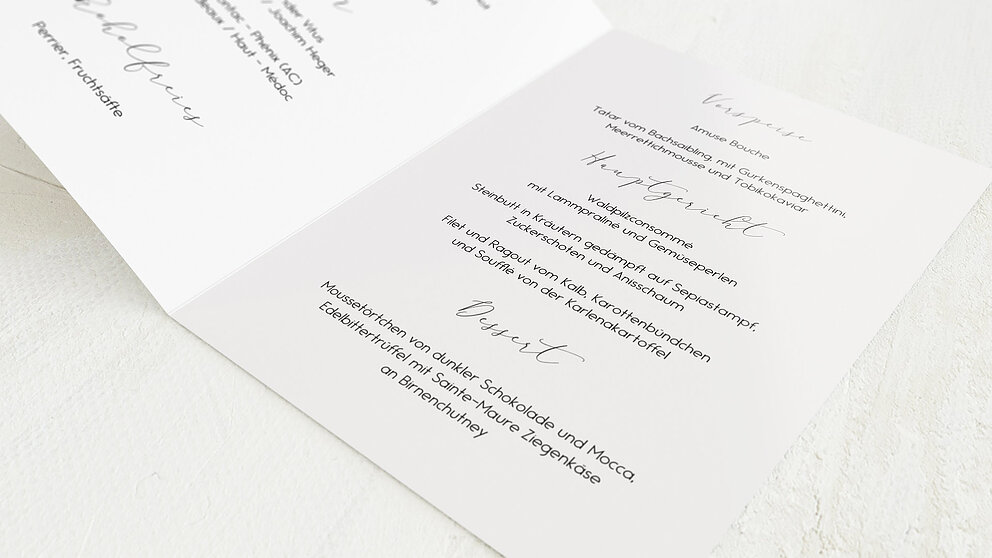 Vitus
/ Joachim Heger
- Phénix (AC)
/ Haut - Medoc
Perner, Fruchtsäfte
Vorspeise
Amuse Bouche
Tatar vom Bachsaibling, mit Gurkenspaghettini,
Meerrettichmousse und Tobikokaviar
Hauptgericht
Waldpilzconsommé
mit Lammpraliné und Gemüseperlen
Steinbutt in Kräutern gedämpft auf Sepiastampf,
Zuckerschoten und Anisschaum
Filet und Ragout vom Kalb, Karottenbündchen
und Souffle von der Karlenakartoffel
Dessert
Moussetörtchen von dunkler Schokolade und Mocca,
Edelbittertrüffel mit Sainte-Maure Ziegenkäse
an Birnenchutney